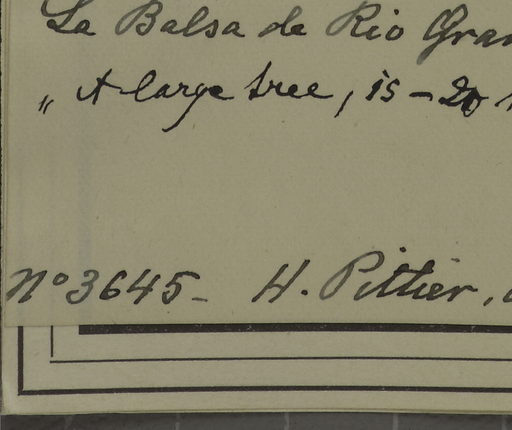 La Balsa de Rio Gran
„ A large tree, 15-20
No 3645- H. Pittier,